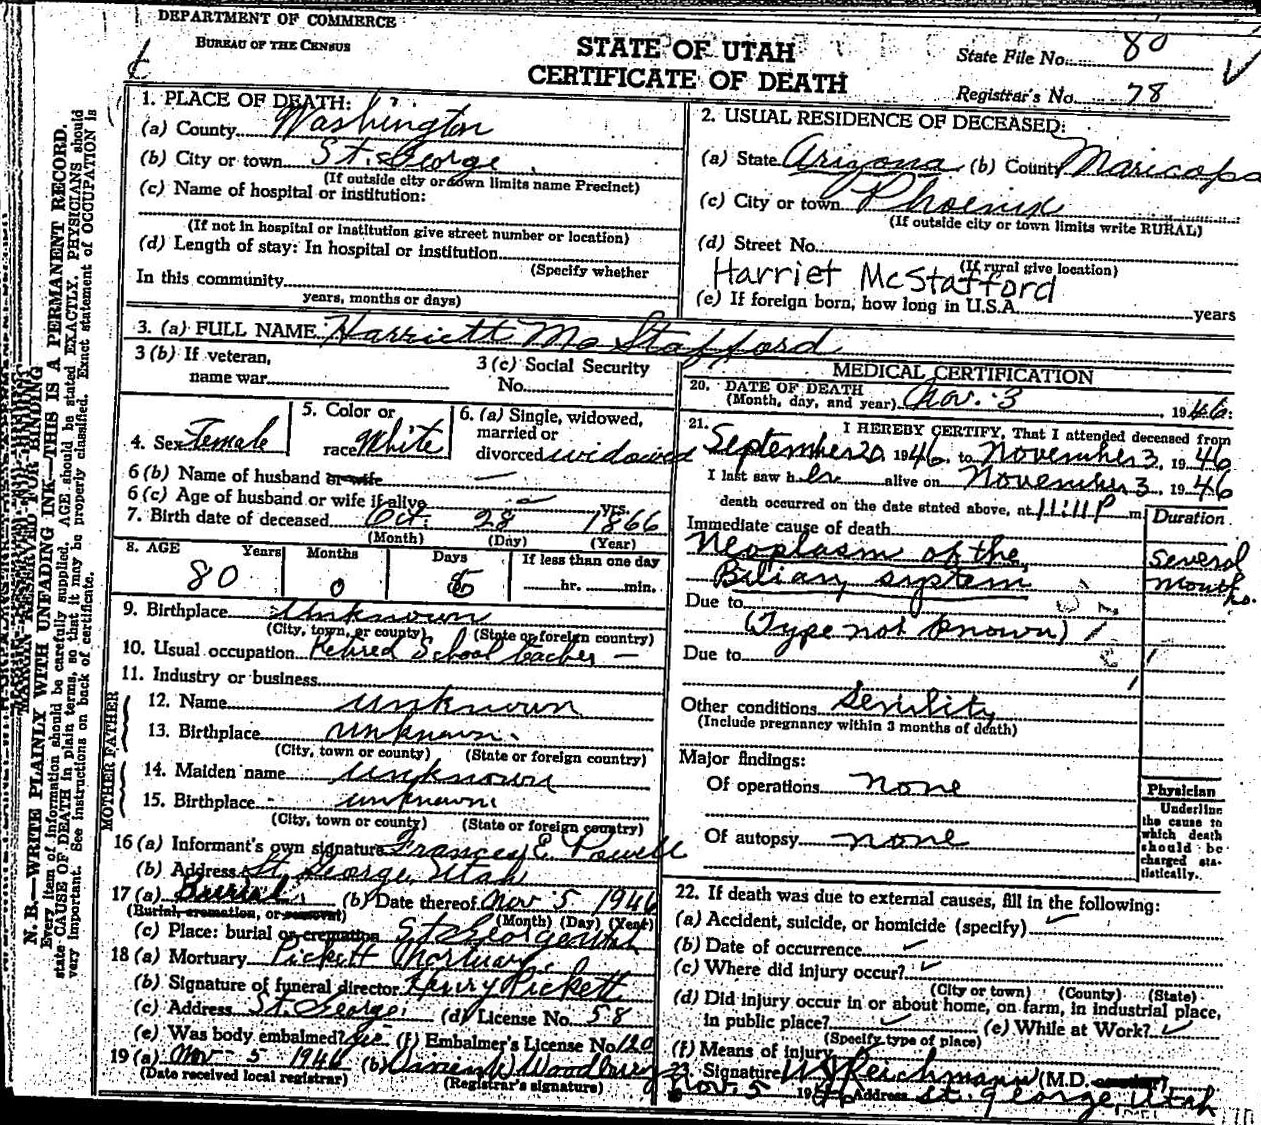 DEPARTMENT OF COMMERCE
BUREAU OF THE CENSUS
STATE OF UTAH
CERTIFICATE OF DEATH
State File No. 80
Registrar's No. 78
N. B.—WRITE PLAINLY WITH UNFADING INK—THIS IS A PERMANENT RECORD.
MARGIN RESERVED FOR BINDING
Every item of information should be carefully supplied. AGE should be stated EXACTLY. PHYSICIANS should
state CAUSE OF DEATH in plain terms, so that it may be properly classified. Exact statement of OCCUPATION is
very important. See instructions on back of certificate.
1. PLACE OF DEATH:
(a) County Washington
(b) City or town St. George
(If outside city or town limits name Precinct)
(c) Name of hospital or institution:
(If not in hospital or institution give street number or location)
(d) Length of stay: In hospital or institution
(Specify whether
In this community
years, months or days)
2. USUAL RESIDENCE OF DECEASED:
(a) State Arizona (b) County Maricopa
(c) City or town Phoenix
(If outside city or town limits write RURAL)
(d) Street No.
(If rural give location)
Harriet McStafford
(e) If foreign born, how long in U.S.A. years
3. (a) FULL NAME Harriett Mc Stafford
3 (b) If veteran,
name war
3 (c) Social Security
No.
4. Sex Female
5. Color or
race White
6. (a) Single, widowed,
married or
divorced widowed
6 (b) Name of husband or wife —
6 (c) Age of husband or wife if alive yrs.
7. Birth date of deceased Oct. 28 1866
(Month) (Day) (Year)
8. AGE Years Months Days If less than one day
80 0 5 hr. min.
9. Birthplace Unknown
(City, town, or county) (State or foreign country)
10. Usual occupation Retired School teacher —
11. Industry or business
FATHER
12. Name unknown
13. Birthplace unknown.
(City, town or county) (State or foreign country)
MOTHER
14. Maiden name unknown
15. Birthplace unknown
(City, town or county) (State or foreign country)
16 (a) Informant's own signature Frances E. Powell
(b) Address St. George, Utah
17 (a) Burial (b) Date thereof Nov 5 1946
(Burial, cremation, or removal) (Month) (Day) (Year)
(c) Place: burial or cremation St George Utah
18 (a) Mortuary Pickett Mortuary
(b) Signature of funeral director Henry Pickett
(c) Address St. George, (d) License No. 58
(e) Was body embalmed? yes (f) Embalmer's License No. 120
19 (a) Nov - 5 1946 (b) Woodbury
(Date received local registrar) (Registrar's signature)
MEDICAL CERTIFICATION
20. DATE OF DEATH
(Month, day, and year) Nov. 3, 1946.
21. I HEREBY CERTIFY, That I attended deceased from
September 20 1946, to November 3, 1946
I last saw her alive on November 3, 1946
death occurred on the date stated above, at 11:11P m
Duration
Immediate cause of death
Neoplasm of the
Biliary system
Several
months.
Due to
(Type not known)
Due to
Other conditions Senility
(Include pregnancy within 3 months of death)
Major findings:
Of operations none
Of autopsy none
Physician
Underline
the cause to
which death
should be
charged sta-
tistically.
22. If death was due to external causes, fill in the following:
(a) Accident, suicide, or homicide (specify) ✓
(b) Date of occurrence ✓
(c) Where did injury occur? ✓
(City or town) (County) (State)
(d) Did injury occur in or about home, on farm, in industrial place,
in public place? ✓ (e) While at Work? ✓
(Specify type of place)
(f) Means of injury
23. Signature Reichmann (M.D.
Nov. 5 1946 Address St. George, Utah